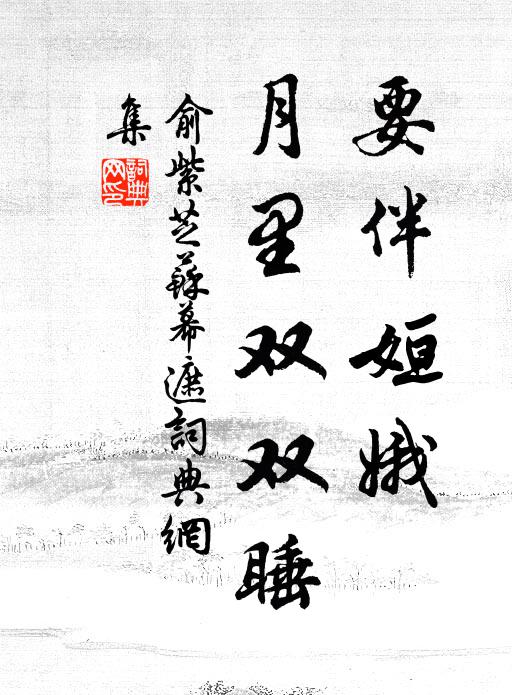 要伴姮娥
月里双双睡
俞紫芝蘇幕遮詞典網
集
詞典
网印